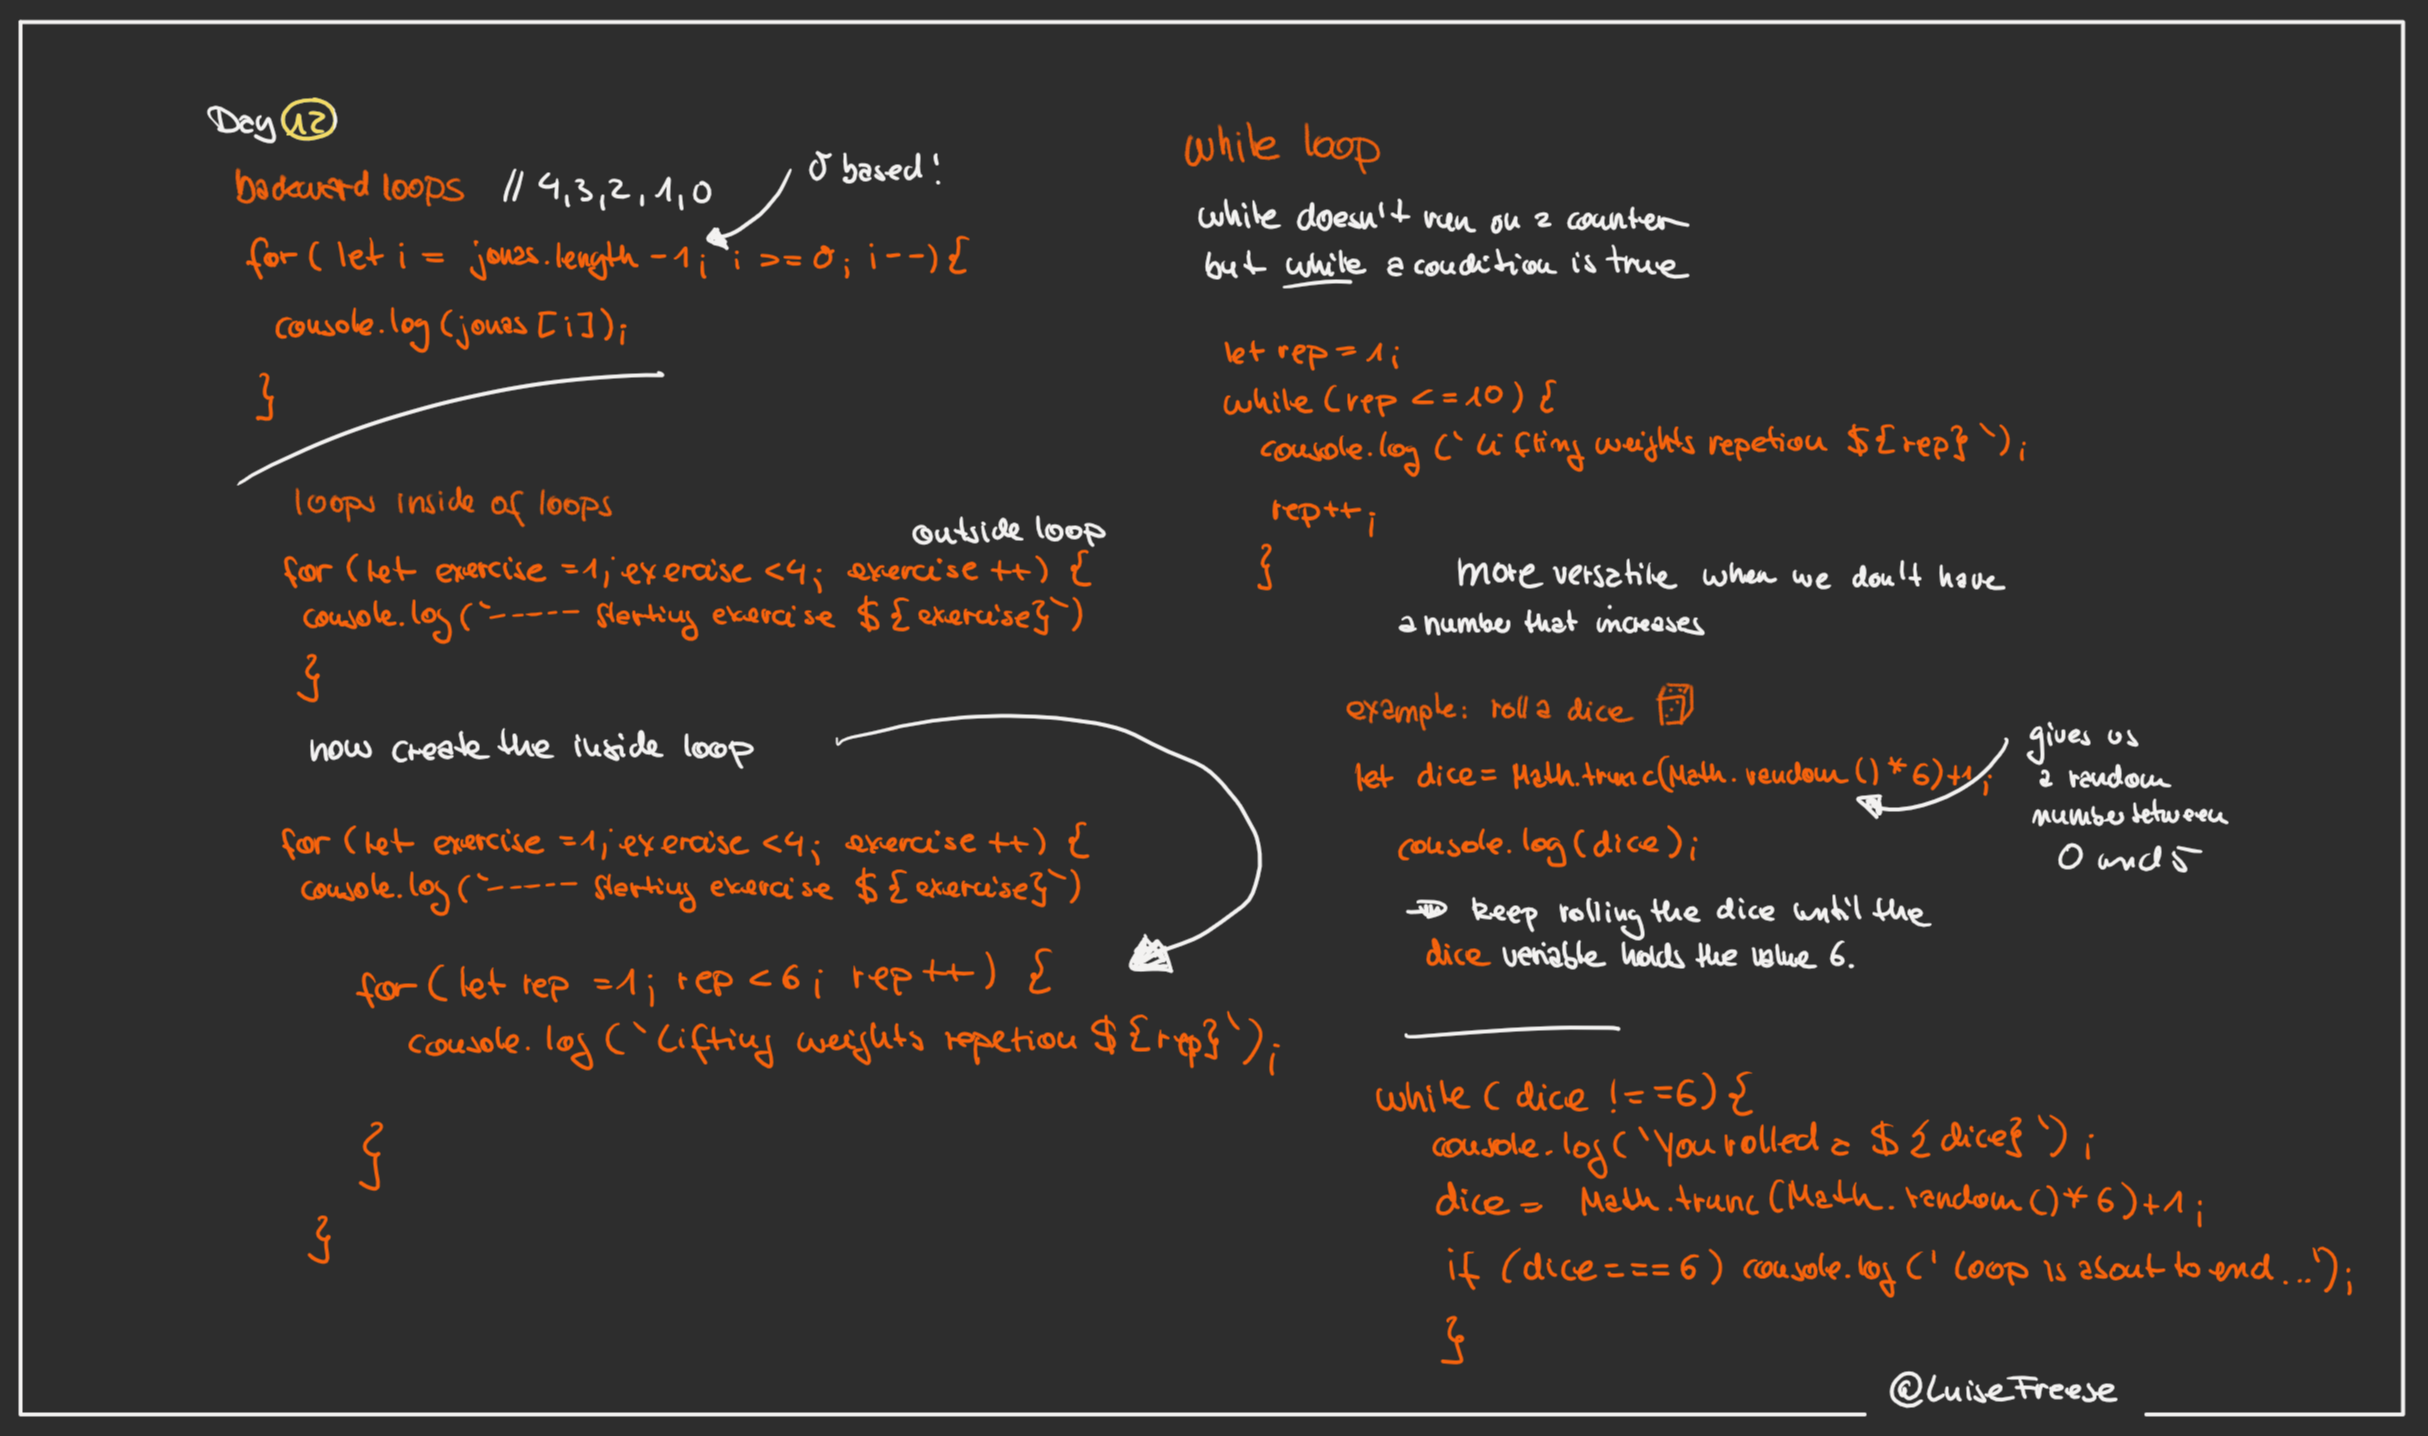 Day 12
backward loops // 4,3,2,1,0
0 based!
for ( let i = jonas.length -1; i >= 0; i--) {
console.log (jonas [i]);
}
loops inside of loops
outside loop
for (let exercise =1; exercise <4; exercise ++) {
console.log(`----- Starting exercise ${exercise}`)
}
now create the inside loop
for (let exercise =1; exercise <4; exercise ++) {
console.log(`----- Starting exercise ${exercise}`)
for (let rep =1; rep < 6; rep ++) {
console.log (`Lifting weights repetion ${rep}`);
}
}
while loop
while doesn't run on a counter
but while a condition is true
let rep = 1;
while (rep <=10) {
console.log (`Lifting weights repetion ${rep}`);
rep++;
}
more versatile when we don't have
a number that increases
example: roll a dice
let dice = Math.trunc(Math.random ()*6)+1;
gives us
a random
number between
0 and 5
console.log (dice);
keep rolling the dice until the
dice variable holds the value 6.
while ( dice !==6) {
console.log(`You rolled a ${dice}`);
dice = Math.trunc (Math.random ()*6)+1;
if (dice === 6) console.log (' Loop is about to end ...');
}
@LuiseFreese